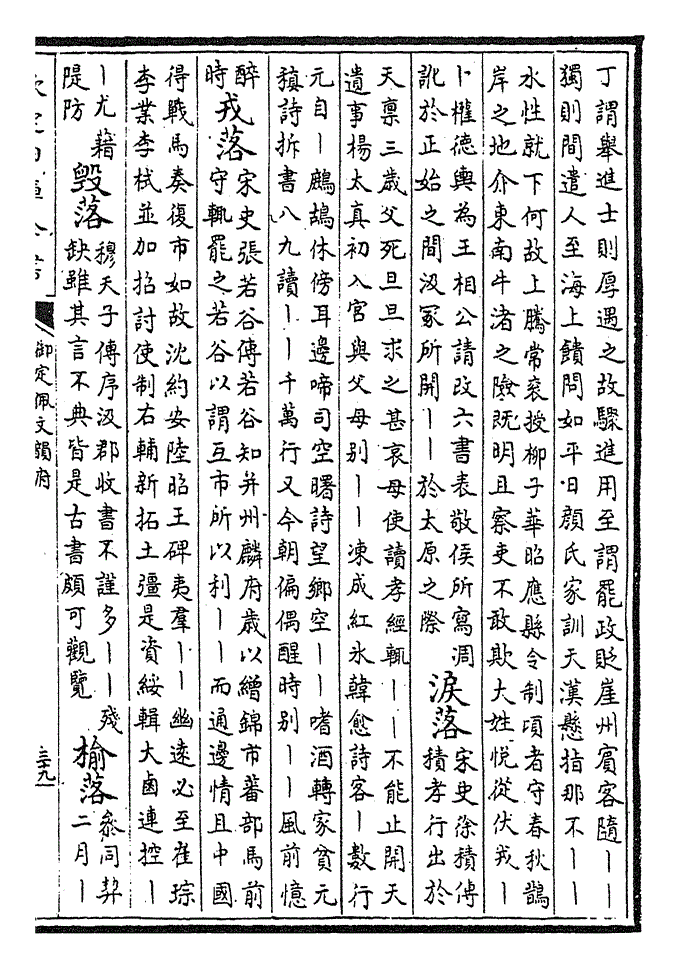 丁謂舉進士則厚遇之故驟進用至謂罷政貶崖州賓客隨丨丨
獨則間遣人至海上饋問如平日顔氏家訓天漢懸指那不丨丨
水性就下何故上騰常衮授柳子華昭應縣令制項者守春秋鵲
岸之地介東南牛渚之險既明且察吏不敢欺大姓悅從伏戎丨
卜權德輿為王相公請改六書表敬侯所寫凋
訛於正始之間汲冢所開丨丨於太原之際
淚落
宋史徐積傳
積孝行出於
天禀三歳父死旦旦求之甚哀母使讀孝經輒丨丨不能止開天
遺事楊太真初入宮與父母别丨丨凍成紅氷韓愈詩客丨數行
元自丨鷓鴣休傍耳邊啼司空曙詩望鄉空丨丨嗜酒轉家貧元
稹詩拆書八九讀丨丨千萬行又今朝偏偶醒時别丨丨風前憶
醉
時
戎落
宋史張若谷傳若谷知并州麟府歳以繒錦市蕃部馬前
守輒罷之若谷以謂互市所以利丨丨而通邊情且中國
得戰馬奏復市如故沈約安陸昭王碑夷羣丨丨幽遠必至崔琮
李業李栻並加招討使制右輔新拓土疆是資綏輯大鹵連控丨
丨尤藉
隄防
毀落
穆天子傳序汲郡收書不謹多丨丨殘
缺雖其言不典皆是古書頗可觀覽
榆落
參同契
二月丨
欽定四庫全書
御定佩文韻府
三十九